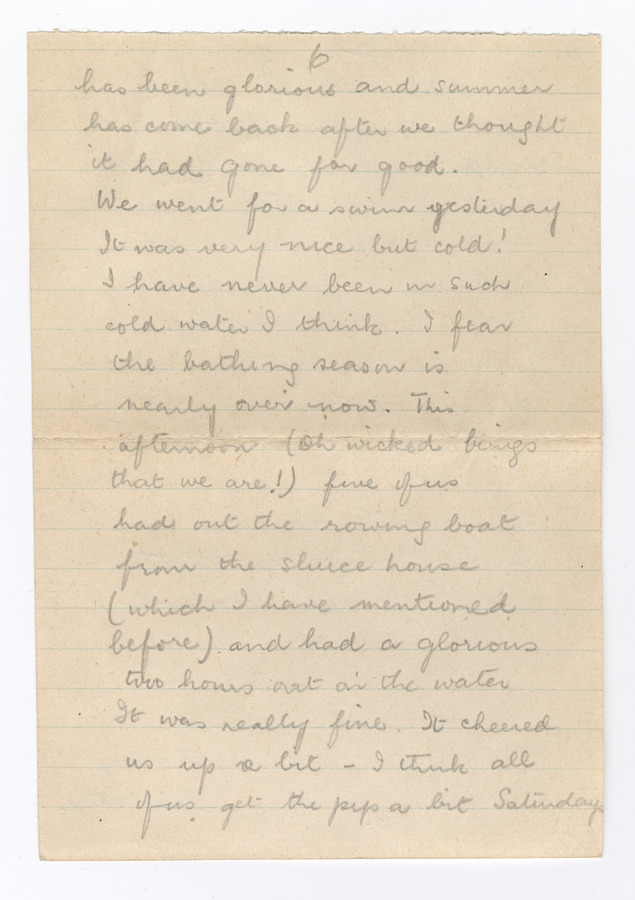 6
has been glorious and summer
has come back after we thought
it had gone for good.
We went for a swim yesterday
It was very nice but cold!
I have never been in such
cold water I think. I fear
the bathing season is
nearly over now. This
afternoon (Oh wicked beings
that we are!) five of us
had out the rowing boat
from the sluice house
(which I have mentioned
before) and had a glorious
two hours out on the water
It was really fine. It cheered
us up a bit – I think all
of us get the pip a bit Saturdays